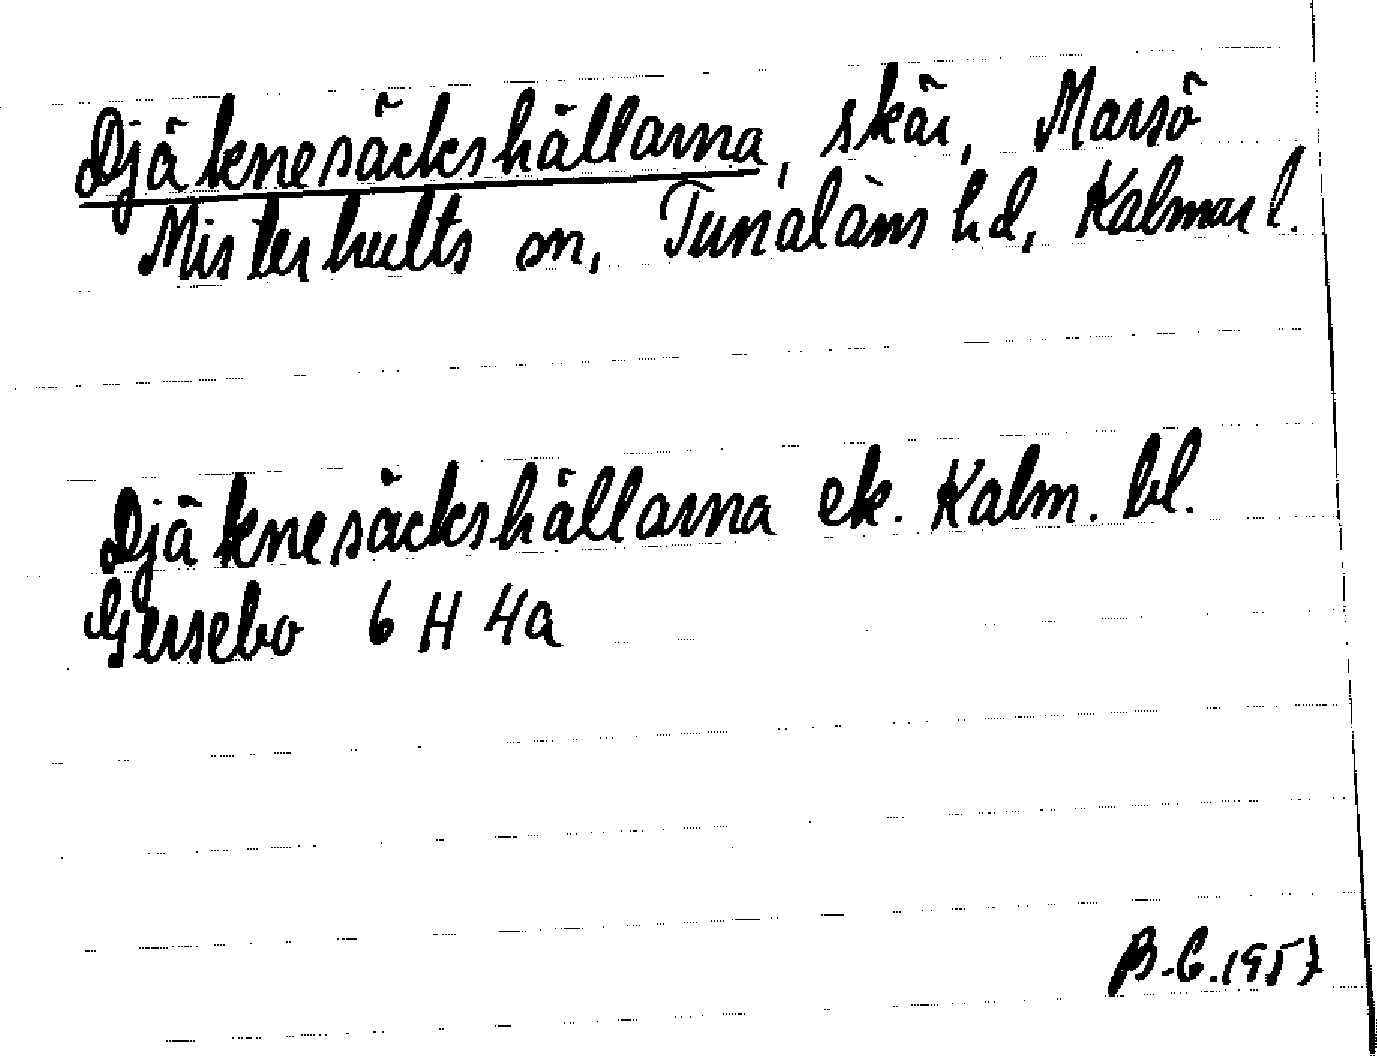 Djäknesäckshällarna, skär, Marsö
Misterhults sn, Tunaläns hd, Kalmar l.
Djäknesäckshällarna ek. Kalm. bl.
Gersebo 6 H 4a
B.C. 1957